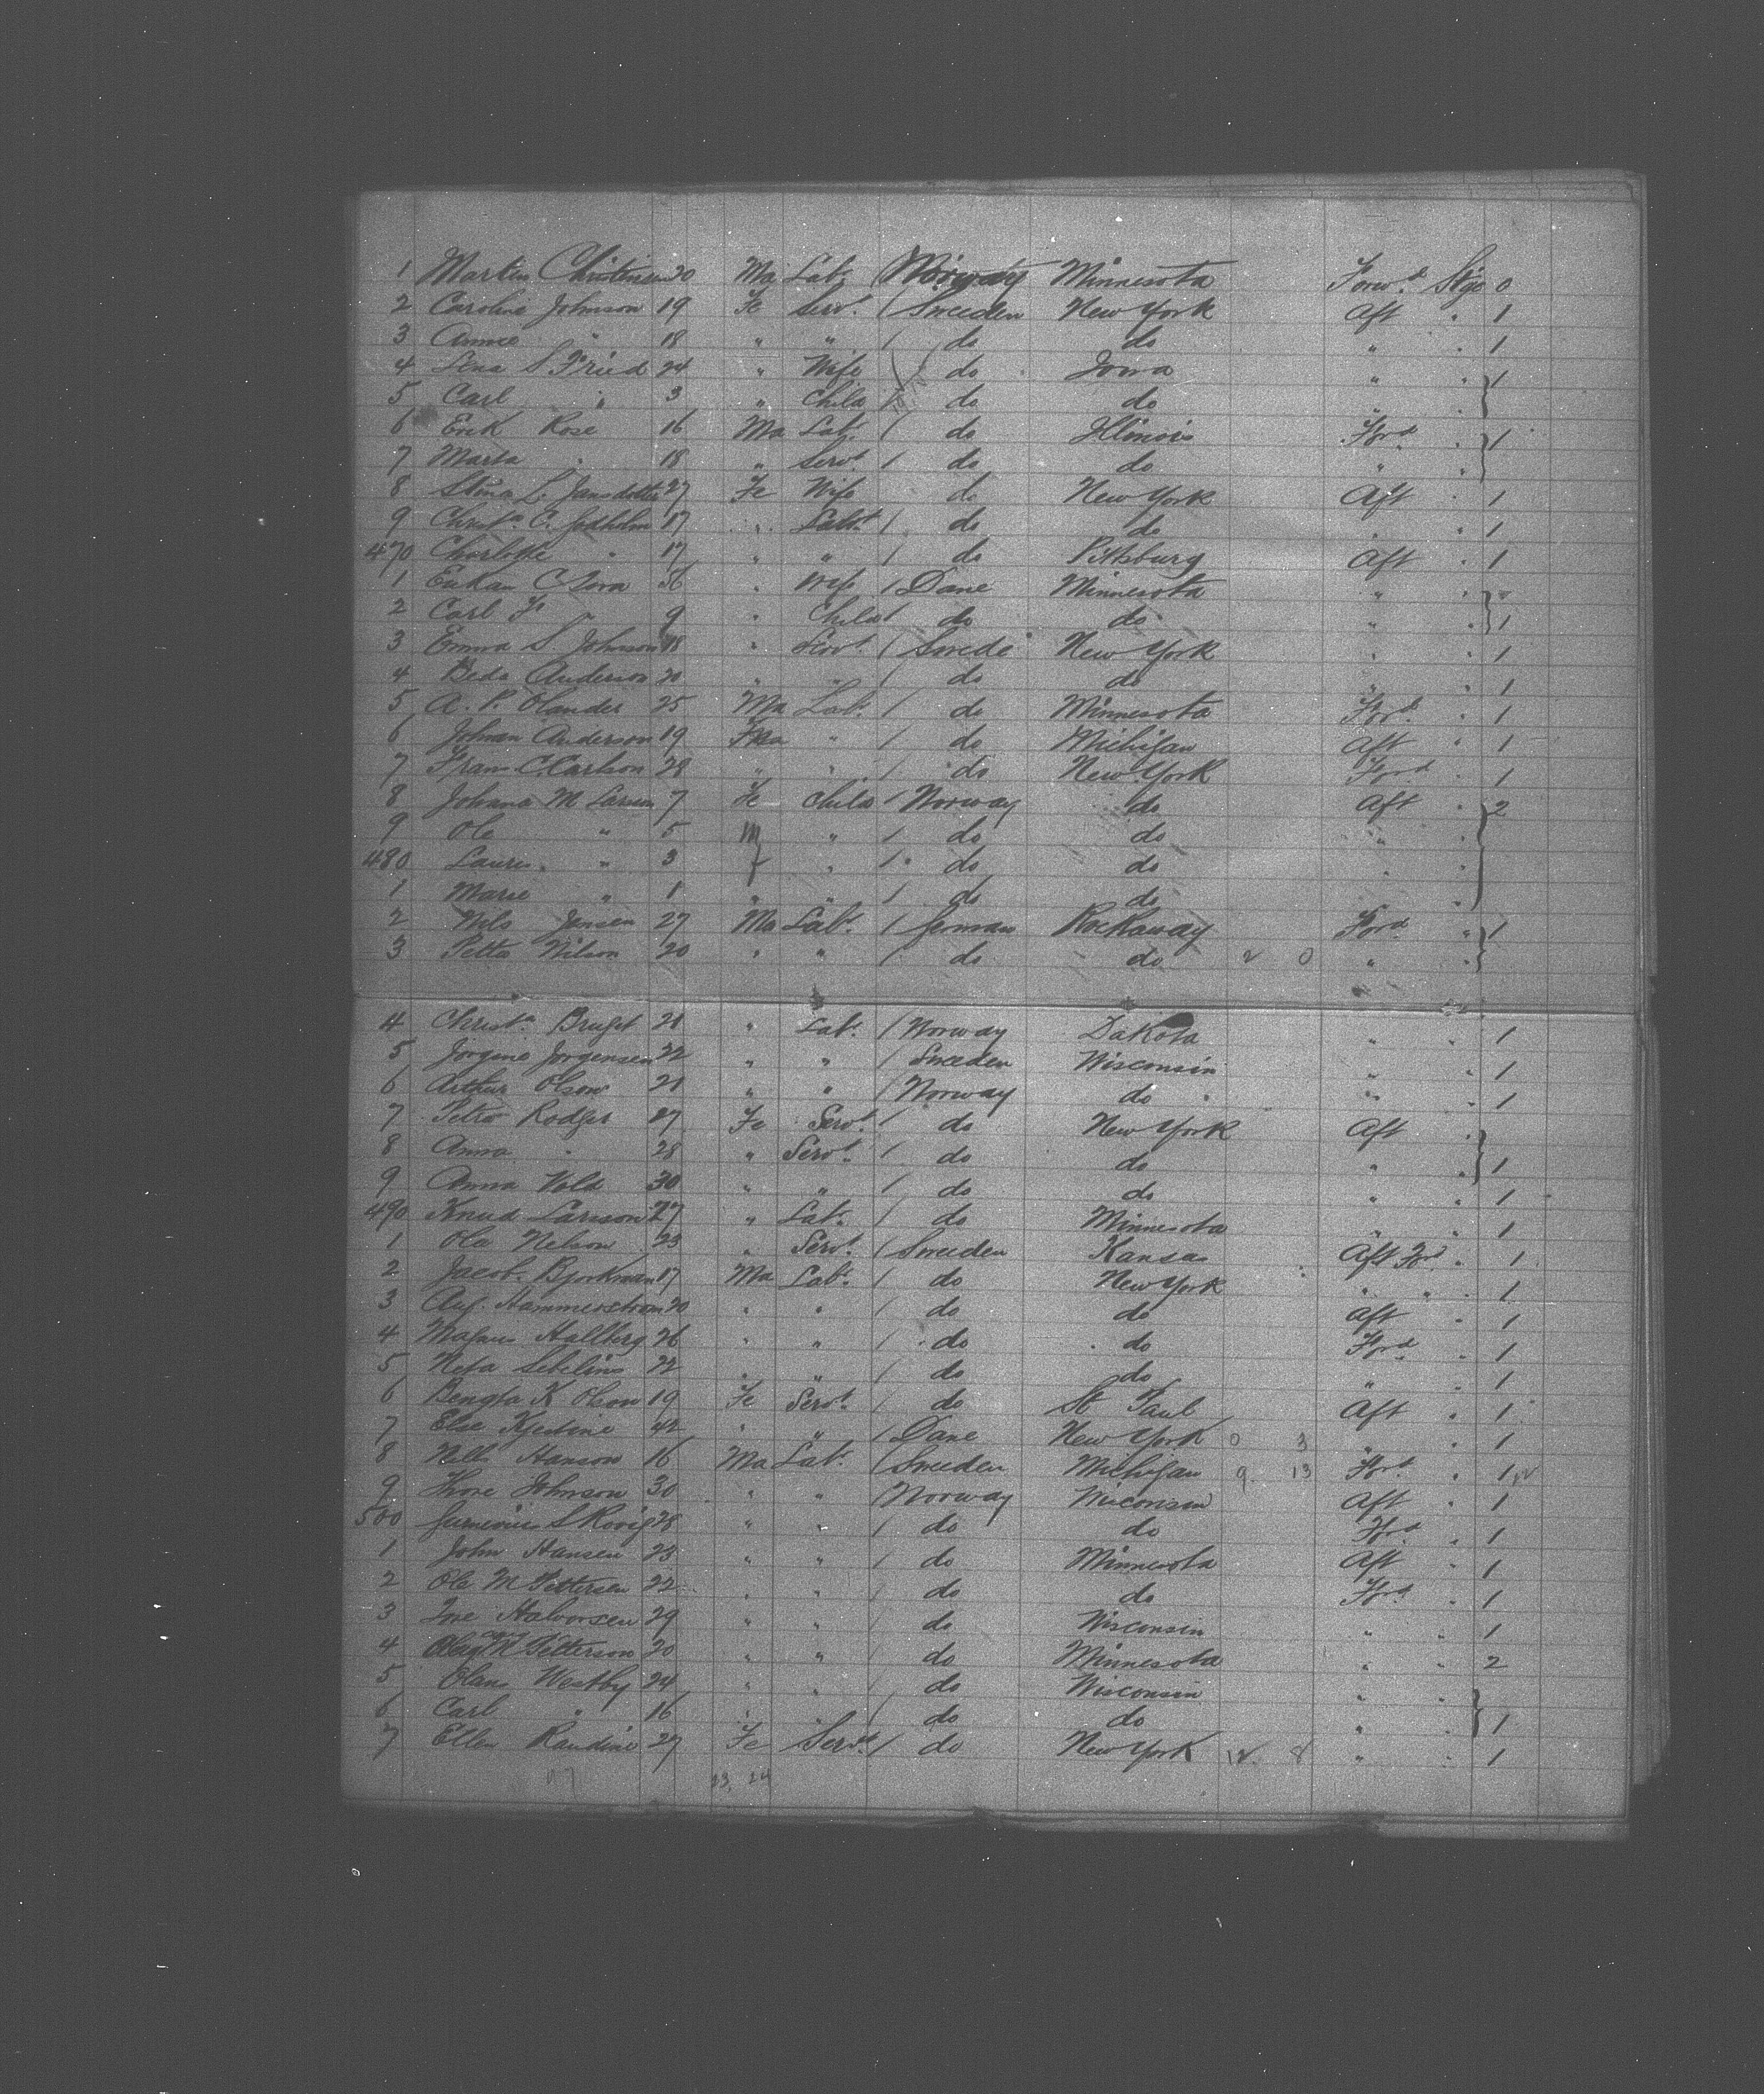 1 Martin Christensen 20 Ma Lab. / Norway Minnesota Forw.d Stge 0
2 Caroline Johnson 19 Fe Serv.t / Sweden New York Aft " 1
3 Annie " 18 " " / do do " " 1
4 Lena S. Fried 24 " Wife do Iowa " " 1
5 Carl " 3 " Child / do do " "
6 Erik Rose 16 Ma Lab. / do Illinois Ford " 1
7 Marta " 18 " Serv.t / do do " "
8 Stina L. Jansdotter 27 Fe Wife do New York Aft " 1
9 Christ.n C. 17 " Lab.t / do do " 1
470 Charlotte " 17 " " / do Pittsburg Aft " 1
1 56 " Wife / Dane Minnesota " " "
2 Carl F. " 9 " Child / do do " " 1
3 Emma S. Johnson 18 " Serv.t / Swede New York " 1
4 Beda Anderson 20 " " / do do " " 1
5 A. P. Olander 25 Ma Lab. / do Minnesota Ford " 1
6 Johan Anderson 19 Ma " / do Michigan Aft " 1
7 Frans C. Carlson 28 " " / do New York Ford " 1
8 Johana M Larsen 7 Fe Child / Norway do Aft " 2
9 Ole " 5 m " / do do " "
480 Lauris " 3 f " / do do " "
1 Marie " 1 " " / do do "
2 Nils Jensen 27 Ma Lab. / German Rockaway Ford " 1
3 Petter Nilson 20 " " / do do 2 0 " "
4 Christ.n 21 " Lab. / Norway Dakota " " 1
5 Jorgine Jorgensen 22 " " / Sweden Wisconsin " " 1
6 Arthur Olson 21 " " / Norway do " " 1
7 Petro Rodger 27 Fe Serv.t / do New York Aft "
8 Anna " 28 " Serv.t / do do " " 1
9 Anna Vold 30 " " / do do " " 1
490 Knud Larsson 27 " Lab. / do Minnesota " " 1
1 Ola Nelson 23 " Serv.t / Sweden Kansas Aft Ford " 1
2 Jacob. Bjorkman 17 Ma Lab. / do New York " " 1
3 Aug. Hammerstrom 20 " " / do do Aft " 1
4 Magnus Hallberg 26 " " / do do Ford " 1
5 22 " " / do do " " 1
6 Bengta K Olson 19 Fe Serv.t / do St Paul Aft " 1
7 Else Kjestine 42 " " / Dane New York 0 3 " 1
8 Nells Hanson 16 Ma Lab. / Sweden Michigan 9 13 Ford " 1
9 Thore Johnson 30 " " / Norway Wisconsin Aft " 1
500 28 " " / do do Ford " 1
1 John Hansen 23 " " / do Minnesota Aft " 1
2 Ole M Pettersen 22 " " / do do Ford " 1
3 Tore Halvorsen 29 " " / do Wisconsin " " 1
4 M Petterson 20 " " / do Minnesota " " 2
5 Olans Westby 24 " " / do Wisconsin " "
6 Carl " 16 " " / do do " " 1
7 Ellen Randine 27 Fe Serv.t / do New York 12 8 " " 1
23, 24